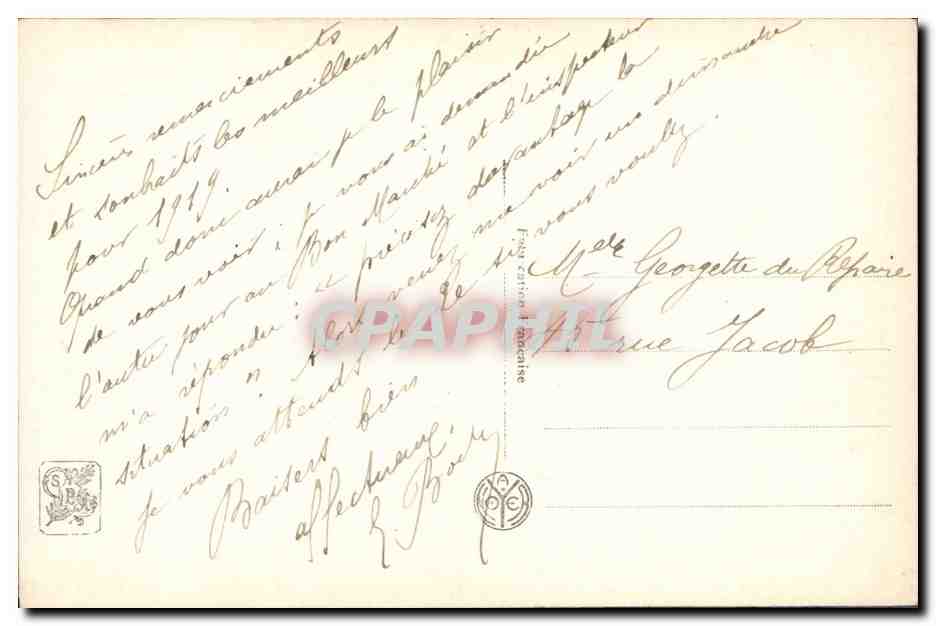 Sincères remerciements
et souhaits les meilleurs
pour 1919.
Quand donc aurai je le plaisir
de vous voir; je vous ai demandée
l'autre jour au Bon Marché et l'inspecteur
m'a répondu: " précisez davantage la
situation " Alors venez me voir un dimanche
je vous attends le 2e si vous voulez.
Baisers bien
affectueux.
E.
Mdlle Georgette du Repaire
45 rue Jacob
Fabrication Française
CPAPHIL